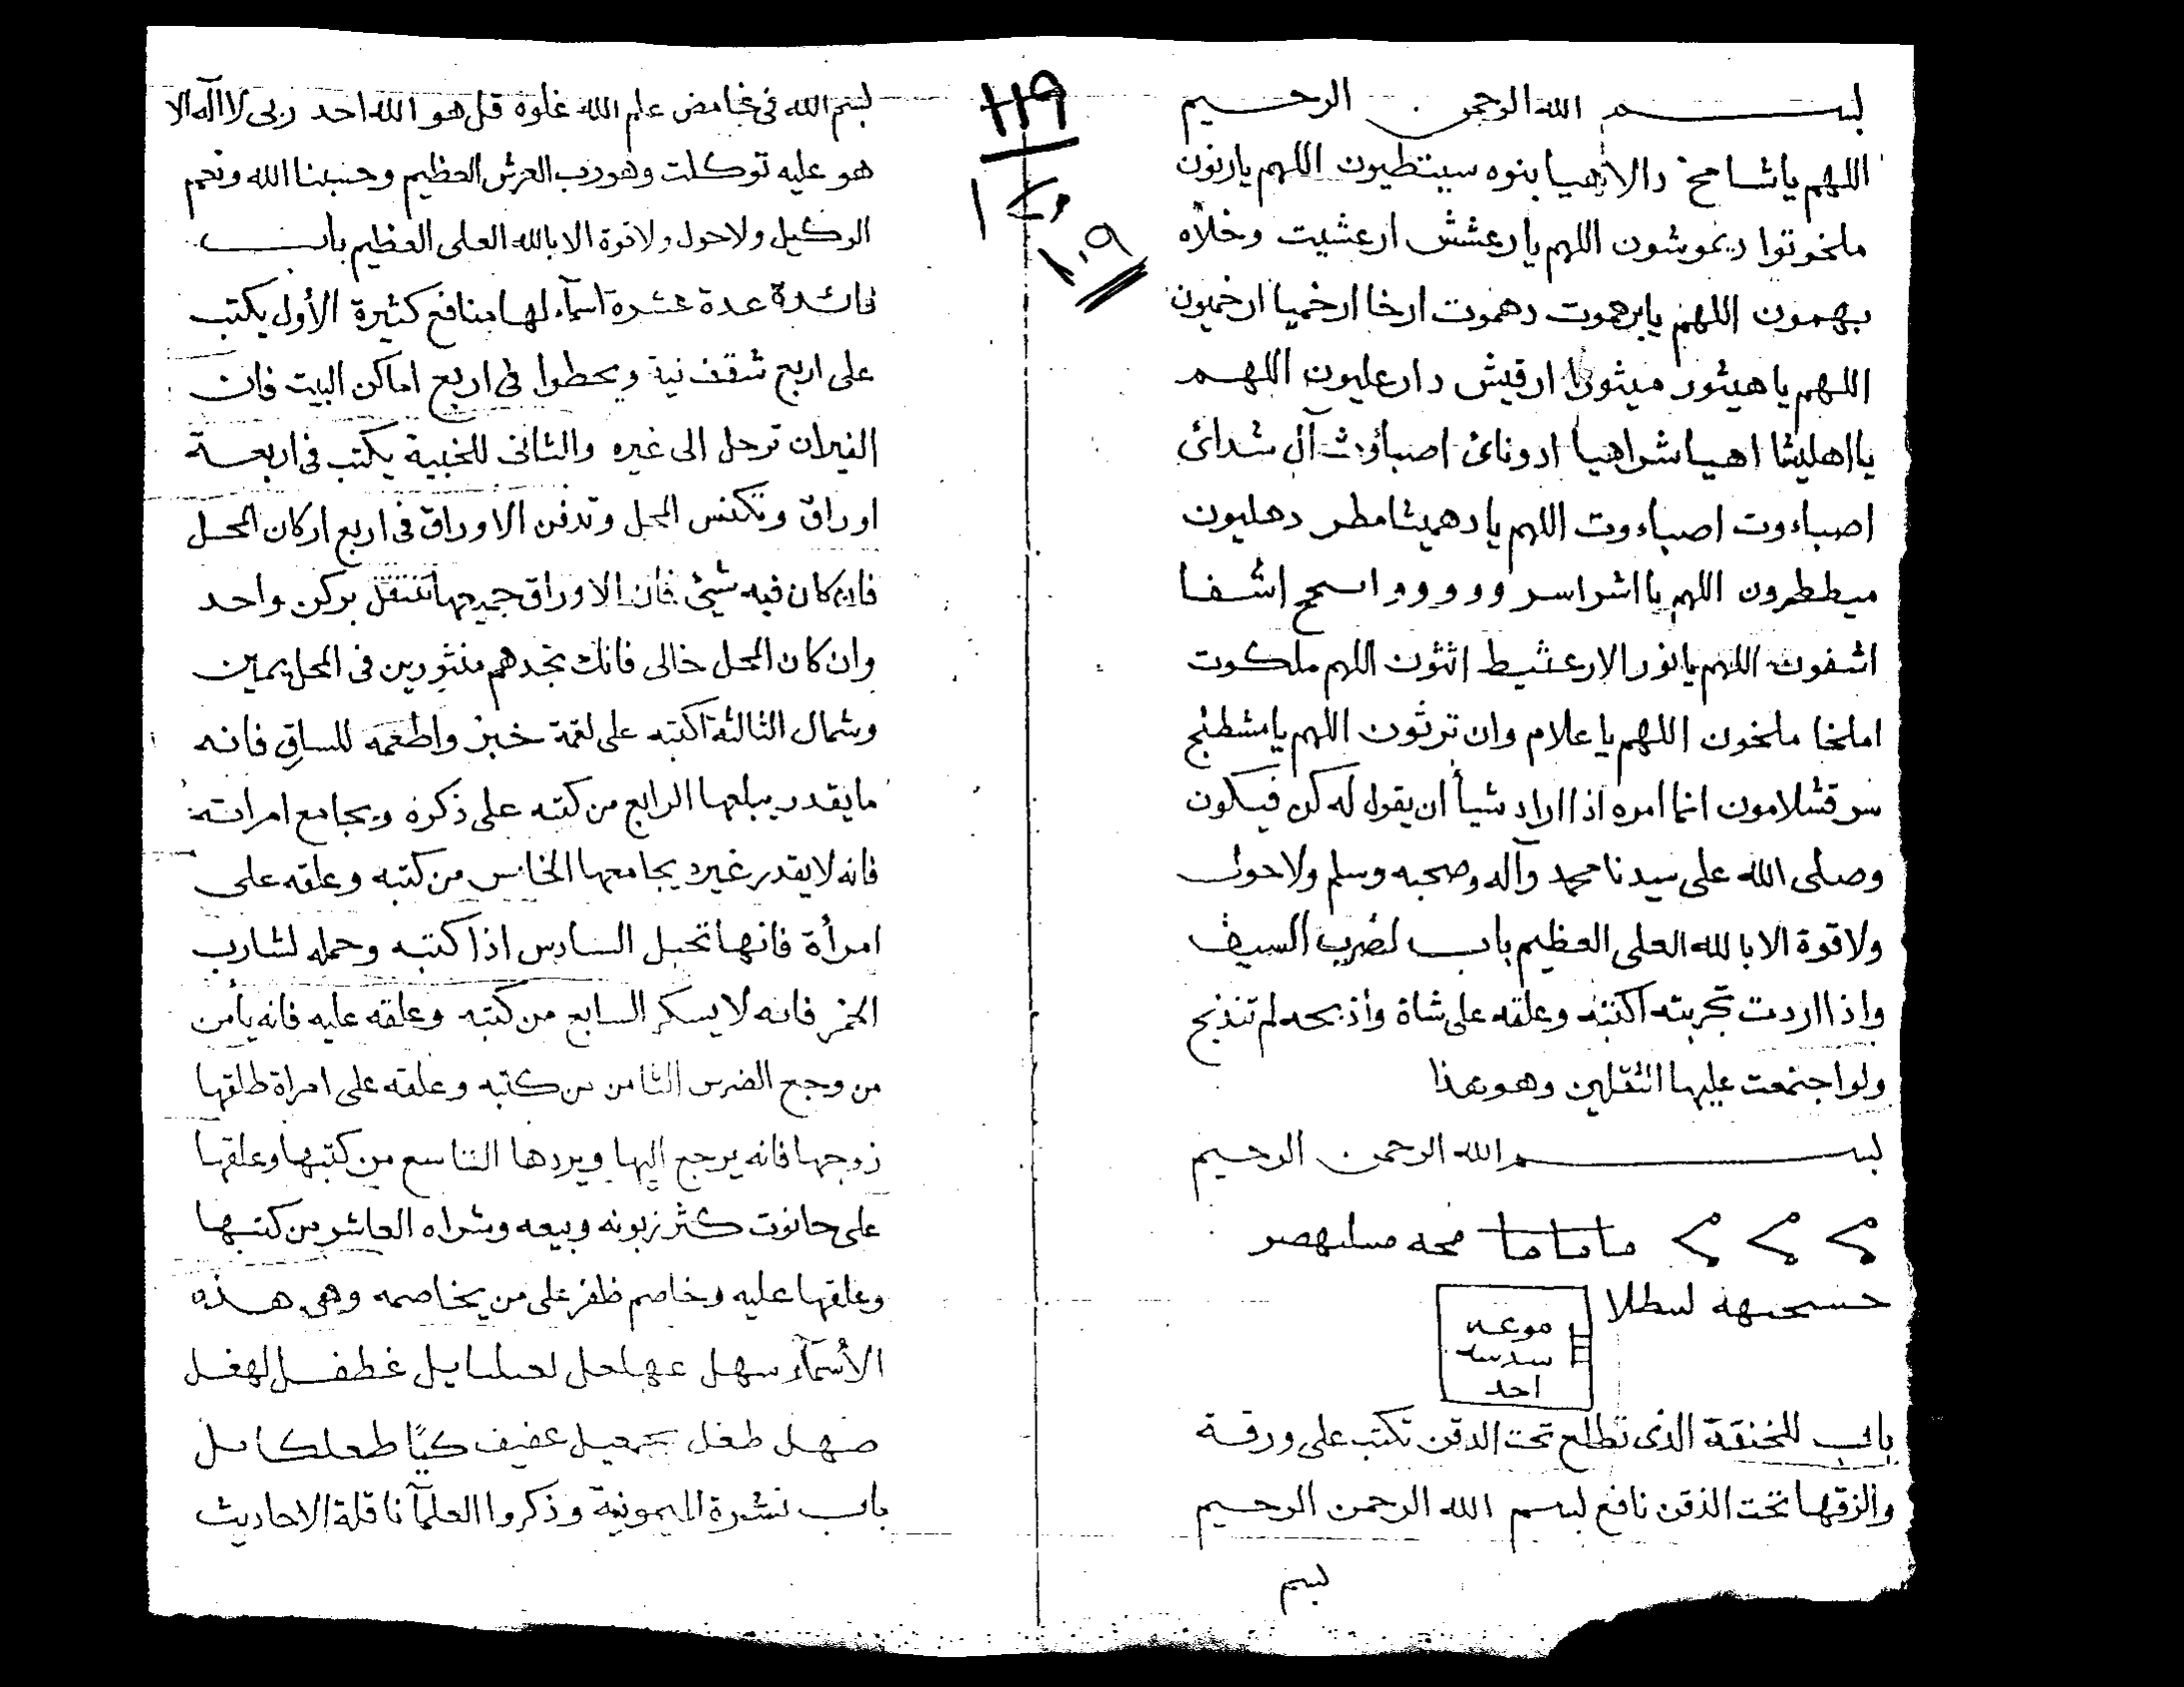 بسم الله الرحمن الرحيم
اللهم ياشامخ دالاهيا بنوه سيتطيون اللهم يارنون
ملخوتوا ديموشون اللهم يا رعشش ارعشيت وخلاه
بهمون اللهم يابرهموت دهموت ارخا ارخميا ارخميون
اللهم ياهيثور ميثورا ارقيش دارعليون اللهم
يااهليثا اهيا شراهيا ادوناى اصباؤث آل شداى
اصباءوت اصباءوت اللهم يا دهميثا مطر دهليون
ميططرون اللهم يااشراسر و و و و و اسمح اشفا
اشفون اللهم يانور الارعشيط اثثون اللهم ملكوت
املخا ملخون اللهم يا علام وان ترثون اللهم يامشطنج
سرقشلامون انما امره اذا اراد شيأ أن يقول له كن فيكون
وصلى الله على سيدنا محمد وآله وصحبه وسلم ولاحول
ولاقوة الا بالله العلى العظيم باب لضرب السيف
واذا اردت تجربته اكتبه وعلقه على شاة واذبحه لم تنذبح
ولو اجتمعت عليها الثقلين وهو هذا
بسم الله الرحمن الرحيم
ماماما محه مسلهصر
لسطلا
موعه
سدسه
احد
باب للخنقة الذى تطلع تحت الدقن تكتب على ورقة
والزقها تحت الذقن نافع بسم الله الرحمن الرحيم
بسم
١١٩
١٠٩
بسم الله فى غامض علم الله غلوه قل هو الله احد ربى لااله الا
هو عليه توكلت وهو رب العرش العظيم وحسبنا الله ونعم
الوكيل ولاحول ولاقوة الا بالله العلى العظيم باب
فائدة عدة عشرة اسمآء لها منافع كثيرة الأول يكتب
على اربع شقف نية ويحطوا فى اربع اماكن البيت فان
الفيران ترحل الى غيره والثانى للخبية يكتب فى اربعة
اوراق وتكنس المحل وتدفن الاوراق فى اربع اركان المحل
فان كان فيه شيئ فان الاوراق جميعها تتنقل بركن واحد
وان كان المحل خالى فانك تجدهم منثورين فى المحل يمين
وشمال الثالثة اكتبه على لقمة خبز واطعمه للساق فانه
مايقدر يبلعها الرابع من كتبه على ذكره ويجامع امراته
فانه لايقدر غيره يجامعها الخامس من كتبه وعلقه على
امرأة فانها تحبل السادس اذا كتبه وحمله لشارب
الخمر فانه لا يسكر السابع من كتبه وعلقه عليه فانه يأمن
من وجع الضرس الثامن من كتبه وعلقه على امراة طلقها
زوجها فانه يرجع اليها ويردها التاسع من كتبها وعلقها
على حانوت كثر زبونه وبيعه وشراه العاشر من كتبها
وعلقها عليه وخاصم ظفر على من يخاصمه وهى هذه
الأسمآء سهل عهلحل غطفل لهغل
صهل طغل عفيف
باب نشرة الميمونية وذكروا العلمآ ناقلة الاحاديث